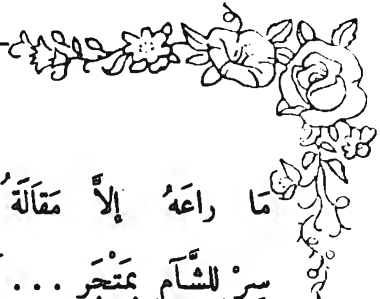 مَا راعَهُ إلاَّ مَقَالَةُ
سِرْ للشَّآمِ بِمَتْجَرٍ . . .